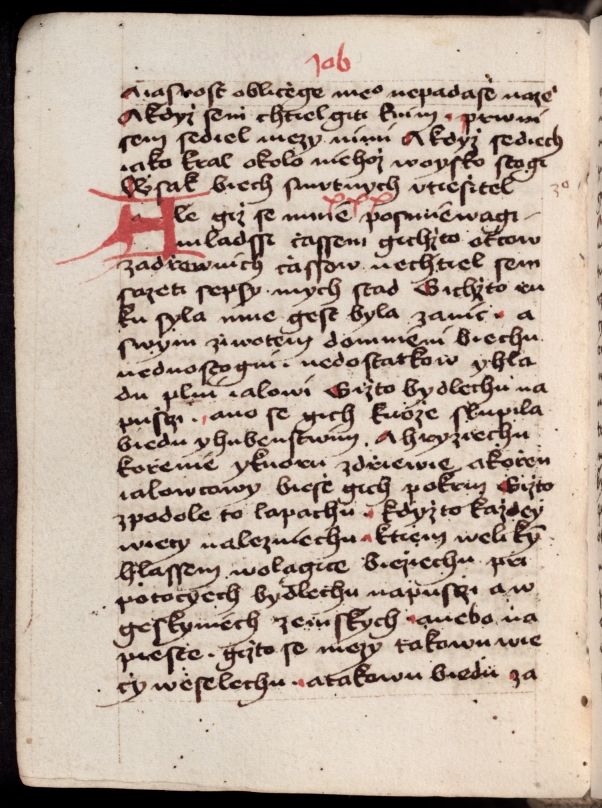 Job
A iasnost obliczege meo nepadasse na ze
A kdyz sem chtiel giti knim · prwni
sem sediel mezy nimi A kdyz sediech
iako kral okolo niehoz woysko stogi
Wssak biech smutnych vtiessitel
xxx
30
Ale giz se mnie posmiewagi
mladssi cassem gichzto otcow
za drzewnich cassow nechtiel sem
sazeti se psy mych stad Gichzto ru
ku syla mne gest byla zanic · a
swym ziwotem domnieni biechu
nednostogni · nedostatkow y hla
du plni ialowi Gizto bydlechu na
pussti · ano se gich kuoze slupila
biedu y hubenstwim · A hryziechu
korzenie y kuoru z drziewie a korzen
ialowcowy biesse gich pokrm Gizto
zpodole to lapachu · kdyzto kazdey
wiecy nalezniechu · k tiem weliky
hlassem wolagice biezechu pri
potocyech bydlechu na pussti a w
geskyniech zemskych · anebo na
piesce · gizto se mezy takowu wie
cy weselechu · a takowu biedu za